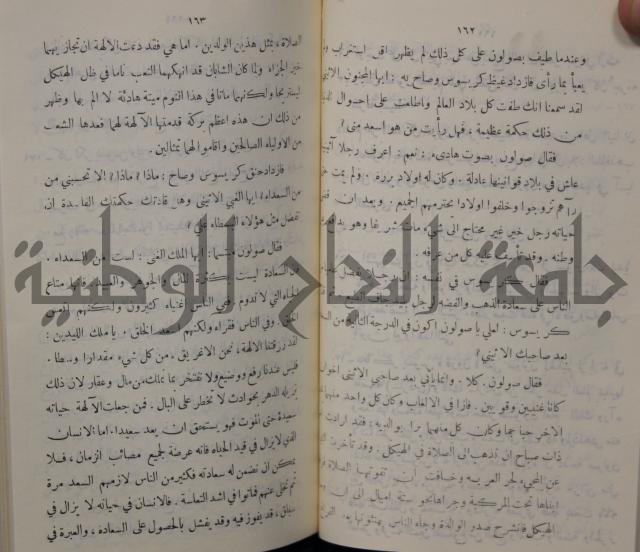 ١٦٢
وعندما طيف بصولون على كل ذلك لم يظهر اقل استغراب
يعبأ بما رأى فازداد غيظ كريسوس وصاح به : ايها المجنون الاثيني
لقد سمعنا انك طفت كل بلاد العالم واطلعت على احوال
من ذلك حكمة عظيمة ، فهل رأيت من هو اسعد مني ؟
فقال صولون بصوت هادىء : نعم : اعرف رجلا
عاش في بلاد قوانينها عادلة . وكان له اولاد بررة . ولم يمت
رآهم تزوجوا وخلفوا اولادا يحترمهم الجميع . وبعد ان
حياته رجل خير غير محتاج الى شيء مات وهو
وطنه . وقد تأسف عليه كل من عرفه .
فقال كريسوس في نفسه :
الناس على سعادة الذهب والفضة
كريسوس : اعلي يا صولون اكون في الدرجة الثانية من
بعد صاحبك الاثيني ؟
فقال صولون . كلا . وانما يأتي بعد صاحبي الاثيني
كانا غنيين وقويين . فازا في الالعاب وكان كل واحد منهما
الاخر حبا جما وكان كل منهما برا بوالديه ؛ فقد ارادت
ذات صباح ان تذهب الى الصلاة في الهيكل . وقد تأخرت
عن المجيء لجر العربة وخافت ان تفوتها الصلاة
ابناها تحت المركبة وجراها نحو ستة اميال الى ان
الهيكل فانشرح صدر الوالدة وجاء الناس يهنئونها
١٦٣
الصلاة ، بمثل هذين الولدين . اما هي فقد دعت الآلهة ان تجازيهما
خير الجزاء ولما كان الشابان قد انهكهما التعب ناما في ظل الهيكل
ليستريحا ولكنهما ماتا في هذا النوم ميتة هادئة لا الم بها وظهر
من ذلك ان هذه اعظم بركة قدمتها الآلهة لهما فعدها الشعب
من الاولياء الصالحين واقاموا لهما تمثالين .
فازداد حنق كريسوس وصاح : ماذا ؟ ماذا ؟ الا تحسبني من
من السعداء ؟ ايها الغبي الاثيني وهل قادتك حكمتك ان
تفضل مثل هؤلاء البسطاء علي ؟
فقال صولون مبتسما : ايها الملك الغني : است من السعداء .
السعادة ليست كثرة المال والجوهر والعبيد فانها متاع
الحياة التي لا تدوم . ففي الناس اغنياء كثيرون ولكنهم اتعس
الخلق ، وفي الناس فقراء ولكنهم اسعد الخلق . يا ملك الليديين :
لقد رزقتنا الآلهة ، نحن الاغريق ، من كل شيء مقدارا وسطا .
فليس عندنا رفيع ووضيع ولا نفتخر بما نملك من مال وعقار لان ذلك
يزيله الدهر بحوادث لا تخطر على البال . فمن جعلت الآلهة حياته
سعيدة حتى الموت فهو يستحق ان يعد سعيدا . اما الانسان
الذي لا يزال في قيد الحياة فانه عرضة لجميع مصائب الزمان ، فلا
يمكن ان نضمن له سعادته فكثير من الناس لازمهم السعد مرة
ثم تخلى عنهم فماتوا في اشد التعاسة . فالانسان في حياته لا يزال في
سباق ، قد يفوز فيه وقد يفشل بالحصول على السعادة ، والعبرة في
جامعة النجاح الوطنية